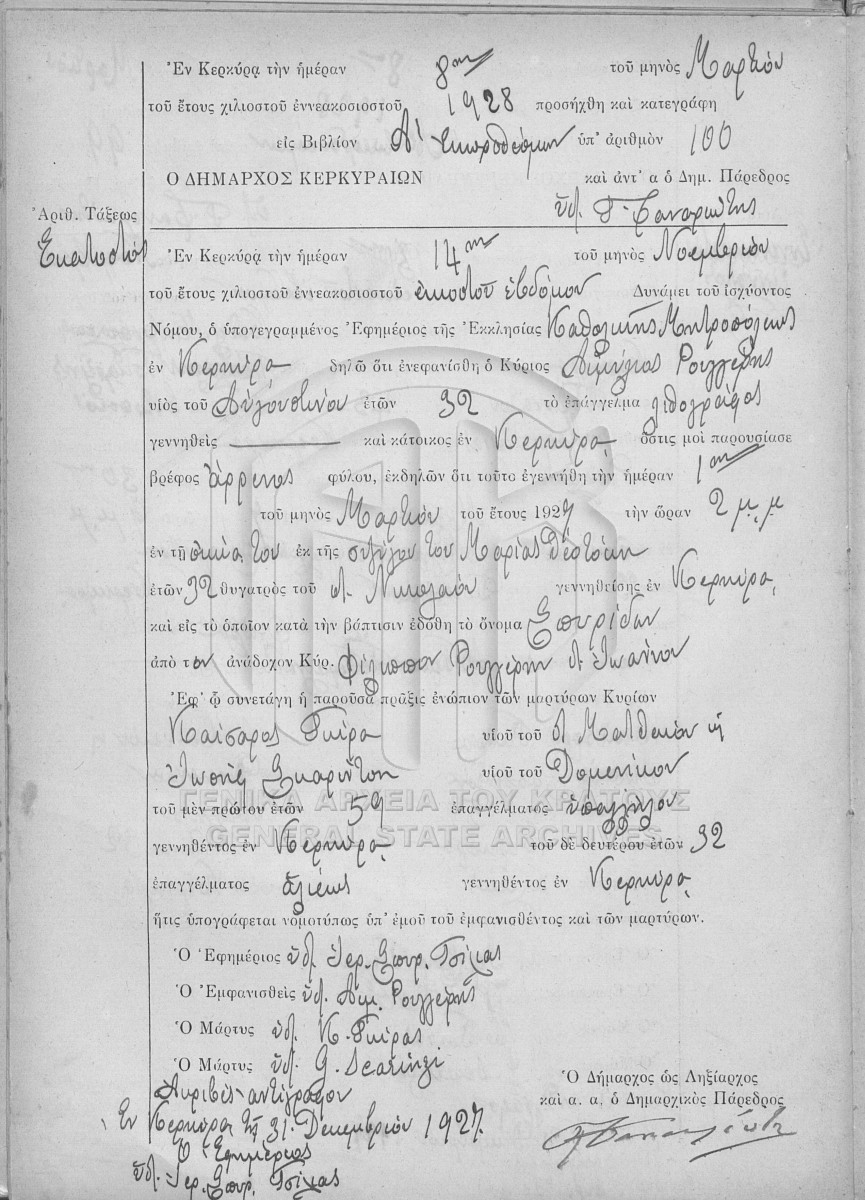 Ἐν Κερκύρᾳ τὴν ἡμέραν 8ην τοῦ μηνὸς Μαρτίου
τοῦ ἔτους χιλιοστοῦ ἐννεακοσιοστοῦ 1928 προσήχθη καὶ κατεγράφη
εἰς Βιβλίον Α' Ἐκπροθέσμων ὑπ' ἀριθμὸν 100
Ο ΔΗΜΑΡΧΟΣ ΚΕΡΚΥΡΑΙΩΝ καὶ ἀντ' α ὁ Δημ. Πάρεδρος
ὑπ.
Ἀριθ. Τάξεως
Ἑκατοστός
Ἐν Κερκύρᾳ τὴν ἡμέραν 14ην τοῦ μηνὸς Νοεμβρίου
τοῦ ἔτους χιλιοστοῦ ἐννεακοσιοστοῦ εἰκοστοῦ ἑβδόμου Δυνάμει τοῦ ἰσχύοντος
Νόμου, ὁ ὑπογεγραμμένος Ἐφημέριος τῆς Ἐκκλησίας Καθολικῆς Μητροπόλεως
ἐν Κερκύρᾳ δηλῶ ὅτι ἐνεφανίσθη ὁ Κύριος Αἰμίλιος Ρουγγέρης
υἱὸς τοῦ Αὐγουστίνου ἐτῶν 32 τὸ ἐπάγγελμα λιθογράφος
γεννηθεὶς καὶ κάτοικος ἐν Κερκύρᾳ ὅστις μοὶ παρουσίασε
βρέφος ἄρρενος φύλου, ἐκδηλῶν ὅτι τοῦτο ἐγεννήθη τὴν ἡμέραν 1ην
τοῦ μηνὸς Μαρτίου τοῦ ἔτους 1927 τὴν ὥραν 2 μ.μ
ἐν τῇ οἰκίᾳ του ἐκ τῆς συζύγου του Μαρίας Θεοτόκη
ἐτῶν 32 θυγατρὸς τοῦ π. Νικολάου γεννηθείσης ἐν Κερκύρᾳ
καὶ εἰς τὸ ὁποῖον κατὰ τὴν βάπτισιν ἐδόθη τὸ ὄνομα Σπυρίδων
ἀπὸ τὸν ἀνάδοχον Κύρ. Φίλιππον Ρουγγέρην π. Ἰωάννου
Ἐφ' ᾧ συνετάγη ἡ παροῦσα πρᾶξις ἐνώπιον τῶν μαρτύρων Κυρίων
Καίσαρος Γκίρα υἱοῦ τοῦ π. Ματθαίου κ
Ἰωσὴφ Σκαρίντζη υἱοῦ τοῦ Δομενίκου
τοῦ μὲν πρώτου ἐτῶν 59 ἐπαγγέλματος ὑπαλλήλου
γεννηθέντος ἐν Κερκύρᾳ τοῦ δὲ δευτέρου ἐτῶν 32
ἐπαγγέλματος ἁλιέως γεννηθέντος ἐν Κερκύρᾳ
ἥτις ὑπογράφεται νομοτύπως ὑπ' ἐμοῦ τοῦ ἐμφανισθέντος καὶ τῶν μαρτύρων.
Ὁ Ἐφημέριος ὑπ. Ἱερ. Σπυρ. Τσίλιας
Ὁ Ἐμφανισθεὶς ὑπ. Αἰμ. Ρουγγέρης
Ὁ Μάρτυς ὑπ. Κ. Γκίρας
Ὁ Μάρτυς ὑπ. G. Scarinzi
Ἀκριβὲς ἀντίγραφον
Ἐν Κερκύρᾳ τῇ 31 Δεκεμβρίου 1927.
Ὁ Ἐφημέριος
ὑπ. Ἱερ. Σπυρ. Τσίλιας
Ὁ Δήμαρχος ὡς Ληξίαρχος
καὶ α. α. ὁ Δημαρχικὸς Πάρεδρος
ΓΕΝΙΚΑ ΑΡΧΕΙΑ ΤΟΥ ΚΡΑΤΟΥΣ
GENERAL STATE ARCHIVES